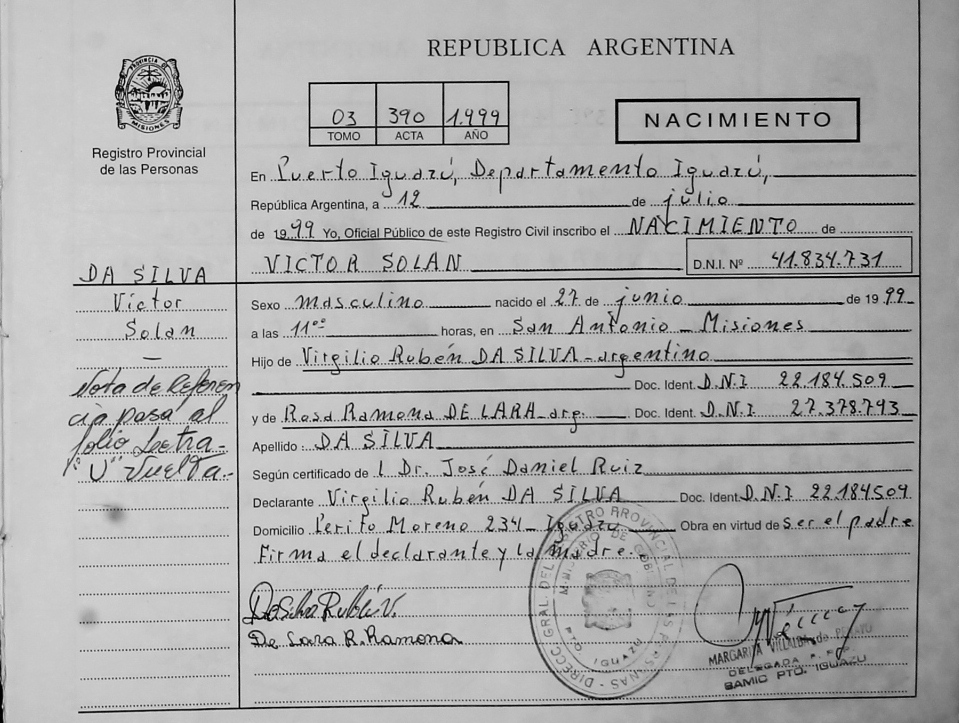 REPUBLICA ARGENTINA
PROVINCIA DE MISIONES
Registro Provincial
de las Personas
03 390 1.999
TOMO ACTA AÑO
NACIMIENTO
En Puerto Iguazú, Departamento Iguazú,
República Argentina, a 12 de julio
de 1999 Yo, Oficial Público de este Registro Civil inscribo el NACIMIENTO de
VICTOR SOLAN D.N.I. Nº 41.834.731
DA SILVA
Víctor
Solan
—
Nota de Referen
cia pasa al
folio Letra
"V" Vuelta.-
Sexo masculino nacido el 27 de junio de 1999
a las 11°° horas, en San Antonio - Misiones
Hijo de Virgilio Rubén DA SILVA - argentino
Doc. Ident. D.N.I 22.184.509
y de Rosa Ramona DE LARA - arg. Doc. Ident. D.N.I 27.378.793
Apellido : DA SILVA
Según certificado de l Dr. José Daniel Ruiz
Declarante Virgilio Rubén DA SILVA Doc. Ident. D.N.I 22.184509
Domicilio Perito Moreno 234 - Iguazú Obra en virtud de ser el padre
Firma el declarante y la madre.
DaSilva Rubén V.
De Lara R. Ramona
DIRECC. GRAL DEL REGISTRO PROVINCIAL DE LAS PERSONAS
MINISTERIO DE GOBIERNO
PTO. IGUAZU
MARGARITA VILLALBA de
DELEGADA
BAMIC PTO. IGUAZU